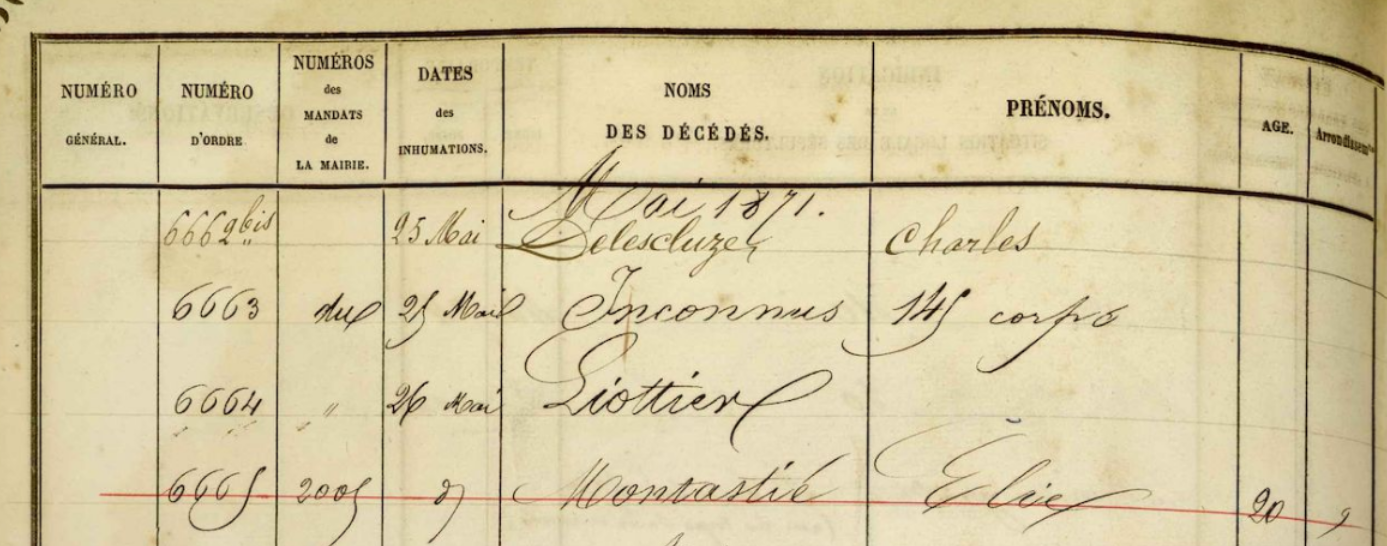 NUMÉRO GÉNÉRAL. NUMÉRO D'ORDRE NUMÉROS des MANDATS de LA MAIRIE. DATES des INHUMATIONS. NOMS DES DÉCÉDÉS. PRÉNOMS. AGE. Arrondissemt
Mai 1871.
6662 bis 25 Mai Delescluze, Charles
6663 25 Mai Inconnus 145 corps
6664 " 26 Mai Liottier
6665 2005 Montastié Élie 20